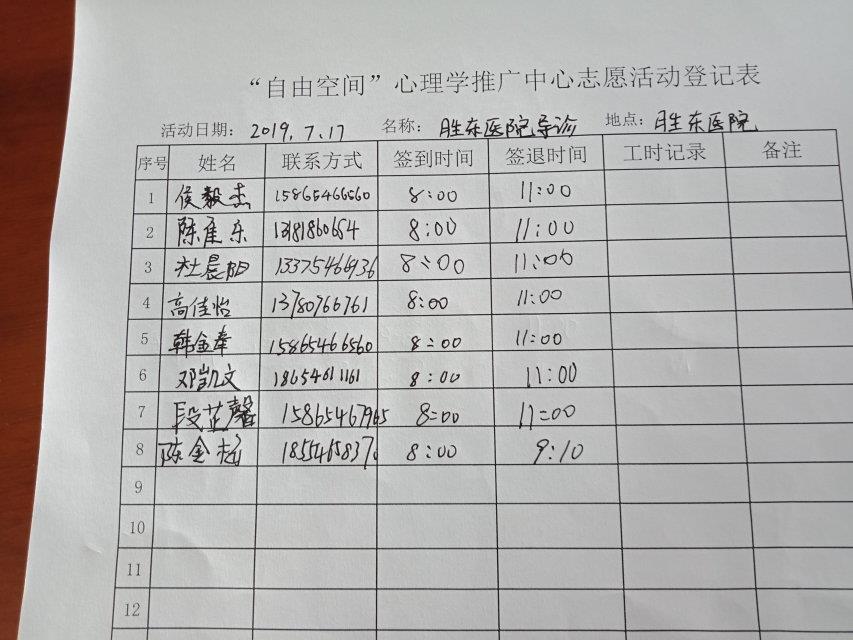 “自由空间”心理学推广中心志愿活动登记表
活动日期: 2019.7.17 名称: 胜东医院导诊 地点: 胜东医院
序号 姓名 联系方式 签到时间 签退时间 工时记录 备注
1 侯毅杰 15865466560 8:00 11:00
2 陈隹乐 13181860654 8:00 11:00
3 杜晨阳 13375466936 8:00 11:00
4 高佳怡 13780766761 8:00 11:00
5 韩金奉 15865466560 8:00 11:00
6 邓凯文 18654611161 8:00 11:00
7 段芷馨 15865467965 8:00 11:00
8 陈金 8:00 9:10
9
10
11
12